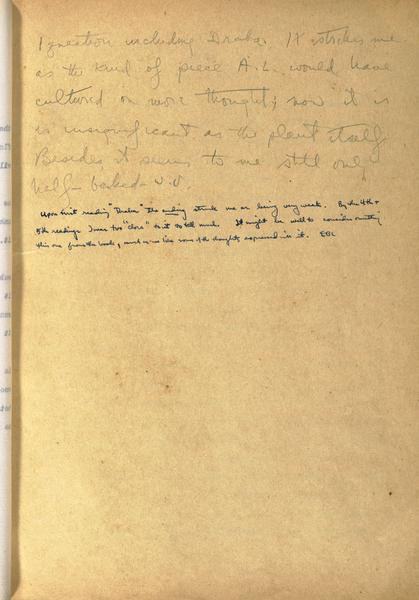 I question including Draba. It strikes me
as the kind of piece A.L. would have
cultured on more thought; now it is
is insignificant as the plant itself
Besides it seems to me still only
half-baked
Upon first reading "Draba" the ending struck me as being very weak. By the 4th +
5th readings I was too "close" to it to tell much. It might be well to consider omitting
this one from the book, much as we like some of the thoughts expressed in it. EBL